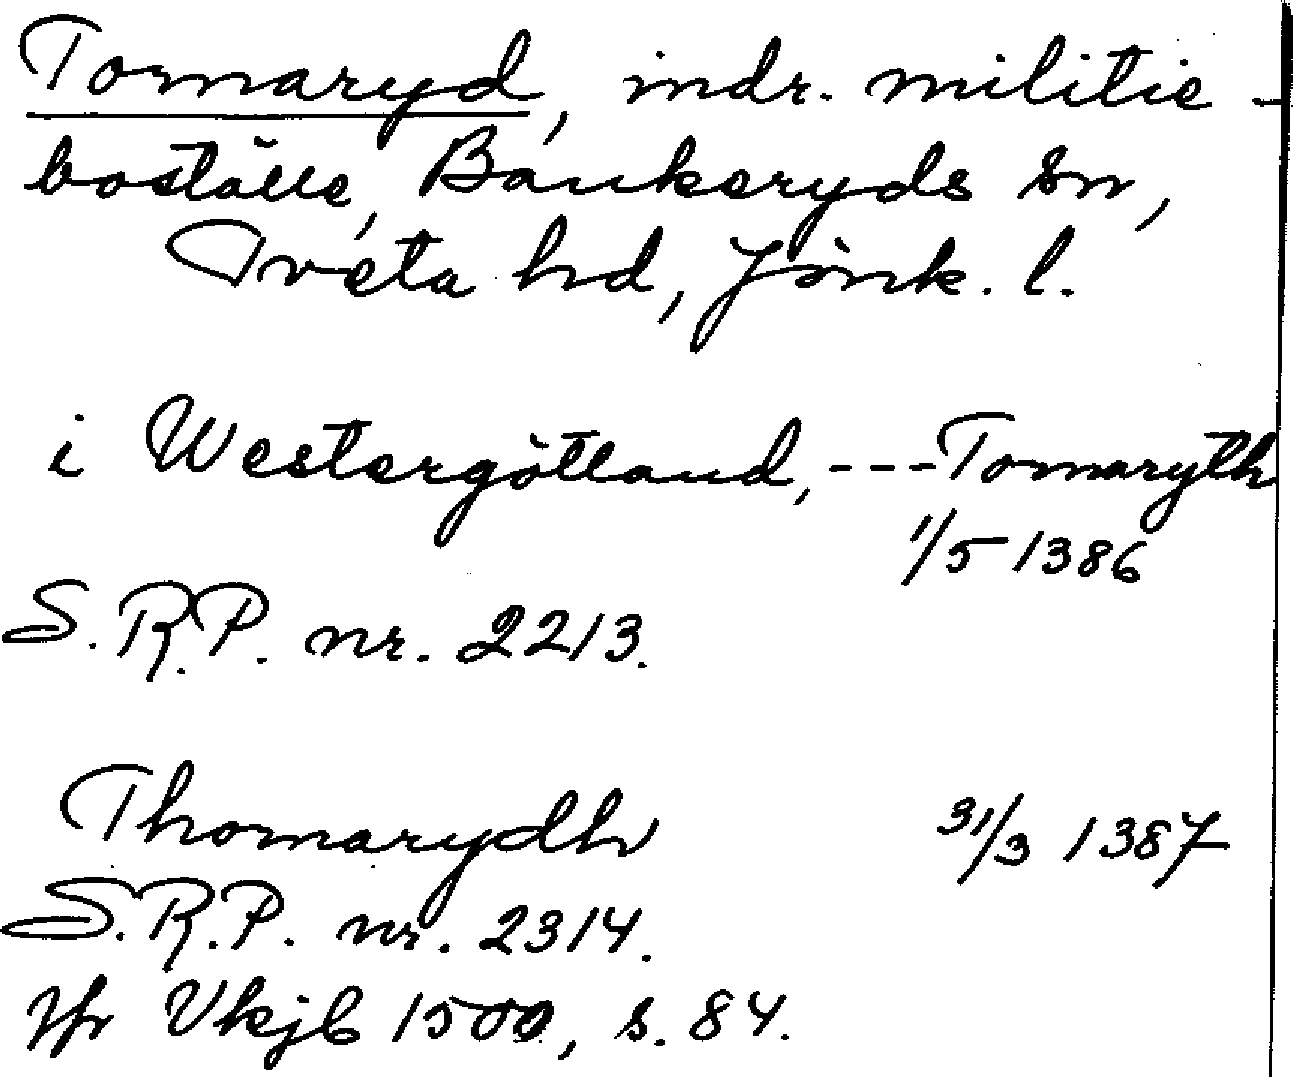 Tomaryd, indr. militie-
boställe, Bankeryds sn,
Tveta hd, Jönk. l.
i Westergötland, --- Tomaryth
1/5 1386
S.R.P. nr. 2213.
Thomarydh 31/3 1387
S.R.P. nr. 2314.
Jfr Vkjb 1500, s. 84.